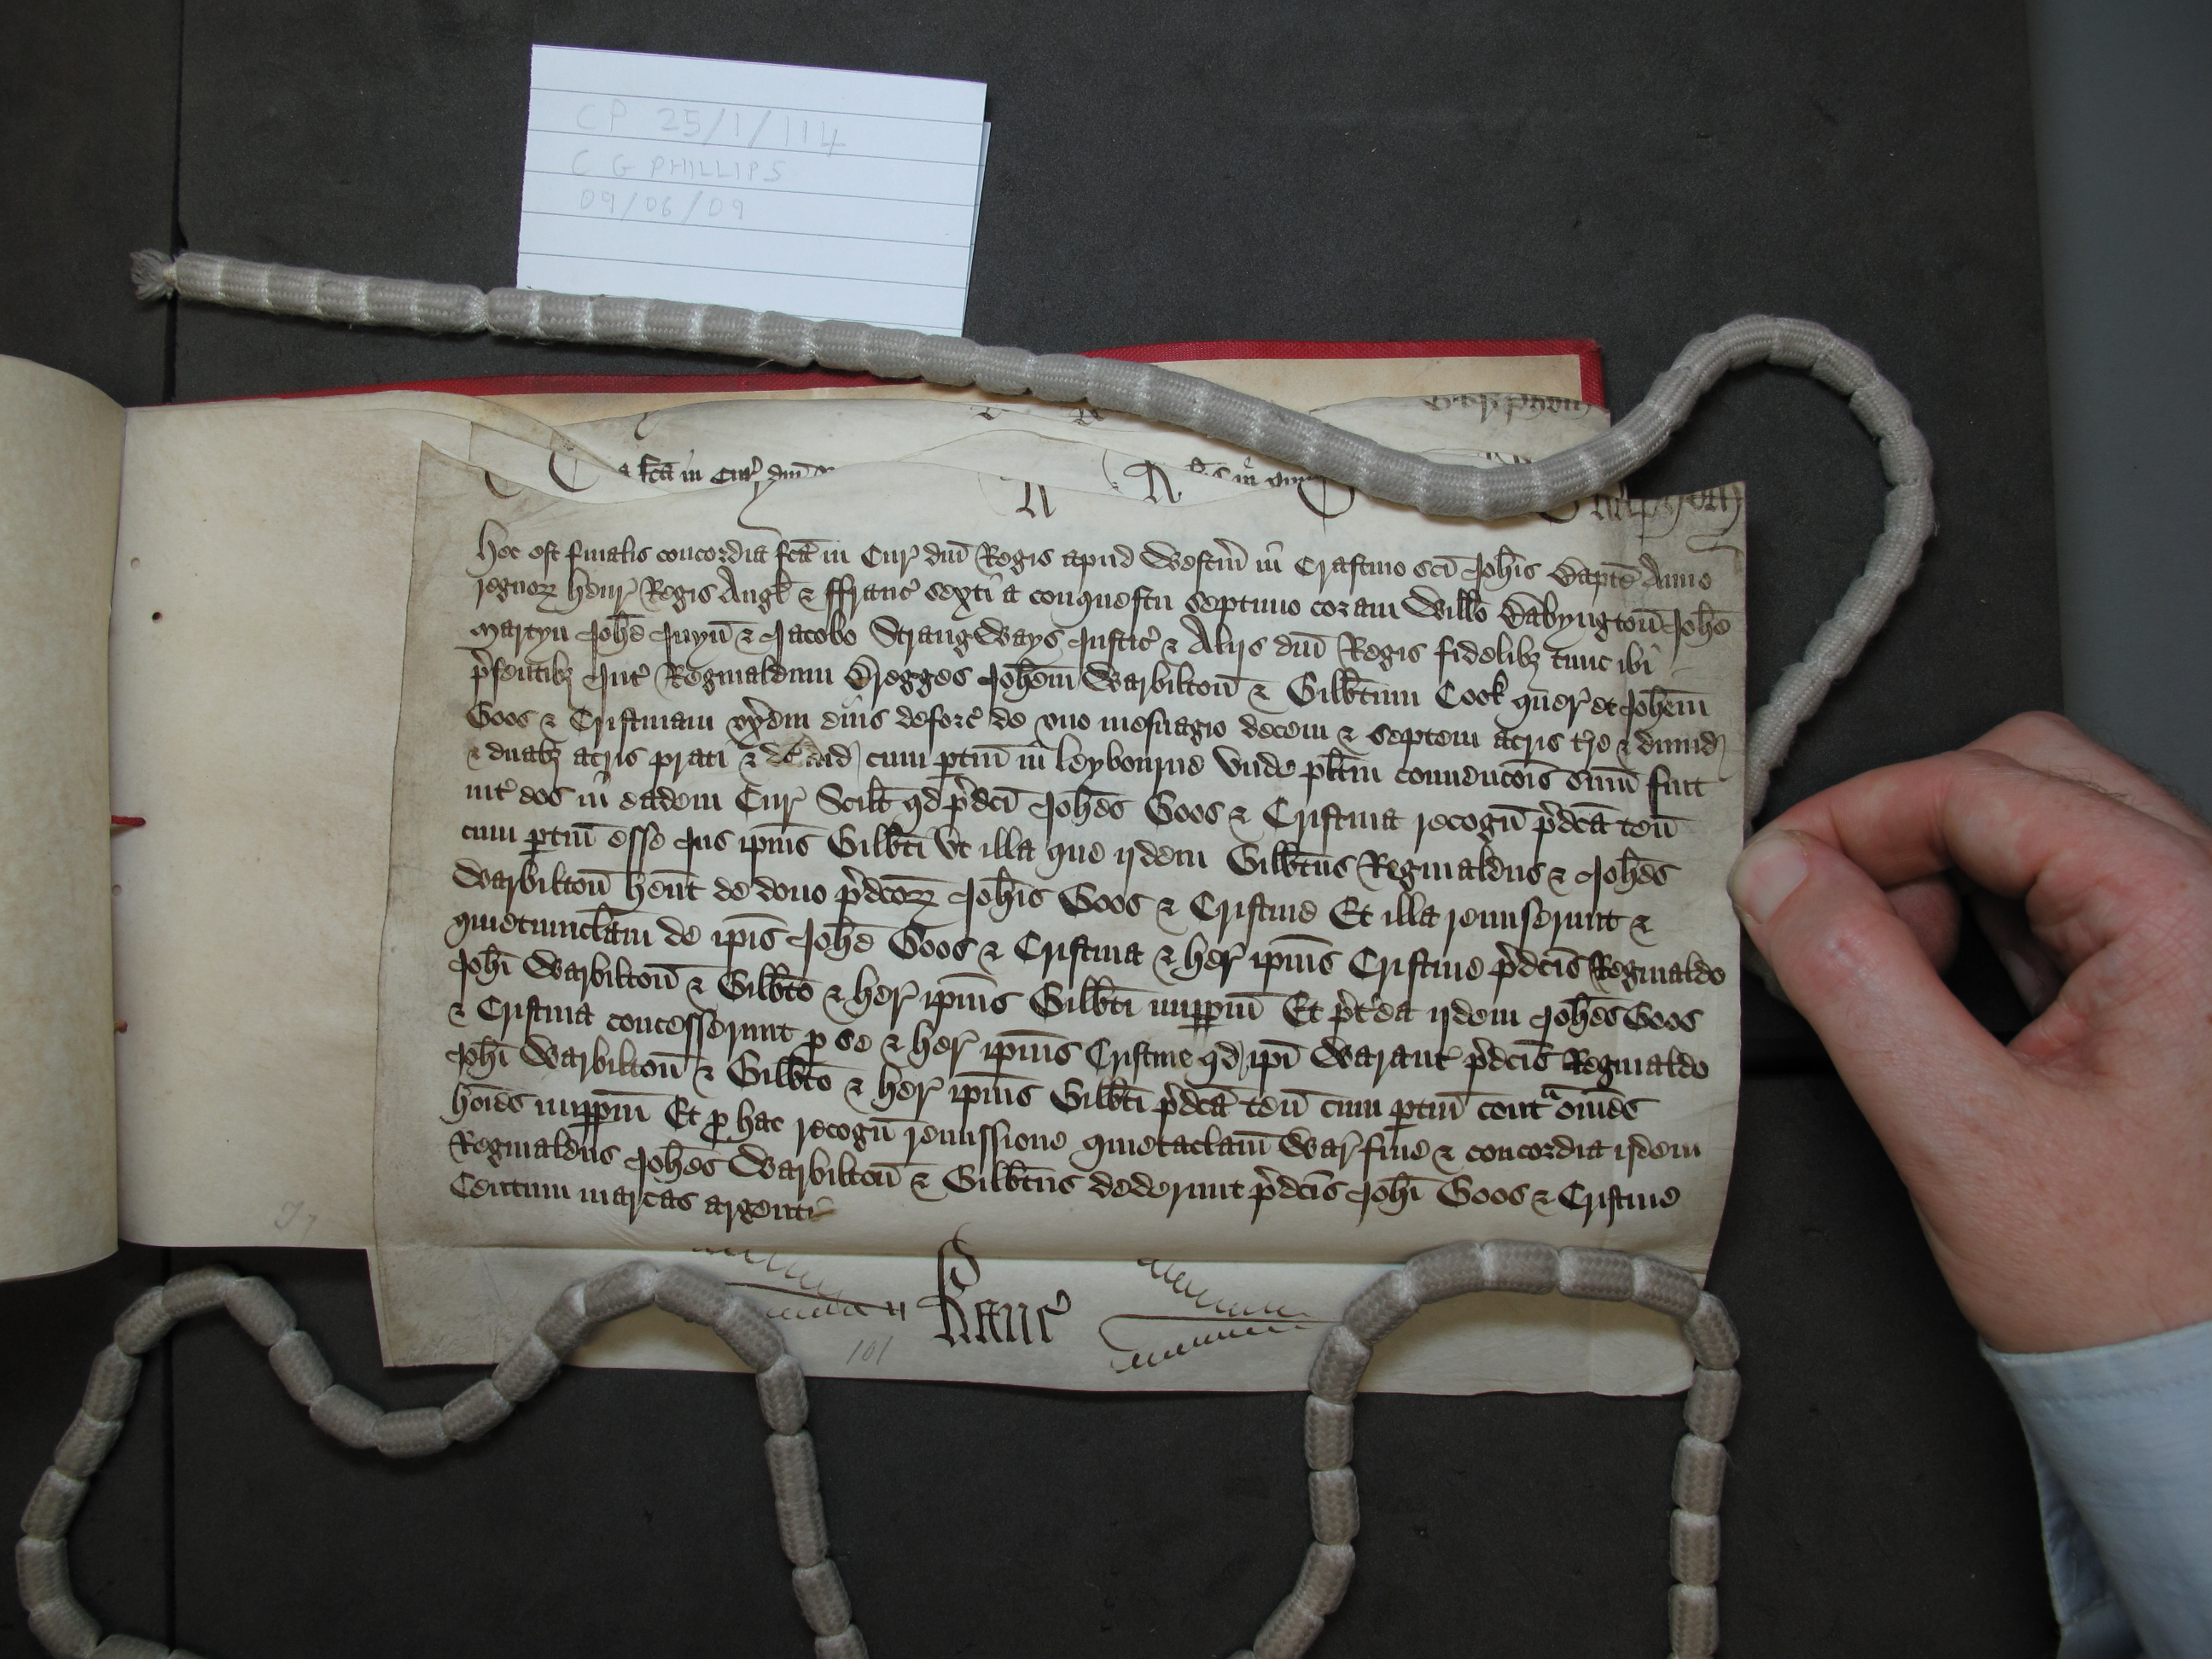 CP 25/1/114
C G PHILLIPS
09/06/09
fc̄a in Cur̉ dn̄i
Hec est finalis concordia fc̄a in Cur̉ dn̄i Regis apud Westm̄ in Crastino sc̄i Joh̄is Bapt̄e Anno
regnoꝝ Henr̉ Regis Angl̄ ⁊ ffranc̉ sexti a conquestu septimo coram Will̄o Babyngton̄ Joh̄e
Martyn Joh̄e Juyn̄ ⁊ Jacobo Strangways Justic̉ ⁊ Alijs dn̄i Regis fidelibꝫ tunc ibi
p̉sentibꝫ Int̉ Reginaldum Dregges Joh̄em Warbilton̄ ⁊ Gilbt̄um Cook quer̉ et Joh̄em
Goos ⁊ Cristinam vx̉em eius deforc̉ de vno mesuagio decem ⁊ septem acris t̉re ⁊ dimid̉
⁊ duabꝫ acris prati ⁊ dimid̉ cum ꝑtin̄ in leybourne Vnde pl̄itm conuenc̄ois sum̄ fuit
int̉ eos in eadem Cur̉ Scilt̄ qd̉ p̉dc̄i Joh̄es Goos ⁊ Cristina recogn̄ p̉dc̄a ten̄
cum ꝑtin̄ esse Jus ip̄ius Gilbt̄i Vt illa que ijdem Gilbt̄us Reginaldus ⁊ Joh̄es
Warbilton̄ hen̄t de dono p̉dc̄oꝝ Joh̄is Goos ⁊ Cristine Et illa remiserunt ⁊
quietumclam̄ de ip̄is Joh̄e Goos ⁊ Cristina ⁊ her̉ ip̄ius Cristine p̉dc̄is Reginaldo
Joh̄i Warbilton̄ ⁊ Gilbt̄o ⁊ her̉ ip̄ius Gilbt̄i inꝑꝑm̄ Et p̉t̉ea ijdem Joh̄es Goos
⁊ Cristina concesserunt ꝑ se ⁊ her̉ ip̄ius Cristine qd̉ ip̄i Warant̉ p̉dc̄is Reginaldo
Joh̄i Warbilton̄ ⁊ Gilbt̄o ⁊ her̉ ip̄ius Gilbt̄i p̉dc̄a ten̄ cum ꝑtin̄ contᵃ om̄es
ho̅i̅es inꝑꝑm̄ Et ꝓ hac recogn̄ remissione quietaclam̄ War̉ fine ⁊ concordia ijdem
Reginaldus Joh̄es Warbilton̄ ⁊ Gilbt̄us dederunt p̉dc̄is Joh̄i Goos ⁊ Cristine
Centum marcas argenti
Kanc̉
101